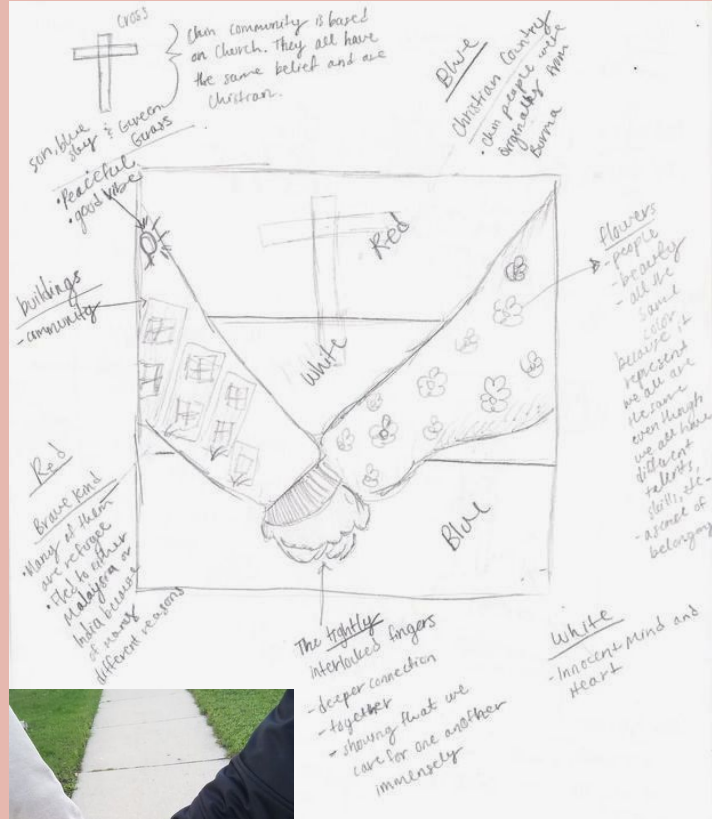 cross
Chin community is based
on Church. They all have
the same belief and are
Christian.
Blue
Christian Country
• Chin people were
originally from
Burma
son, blue
sky & Green
Grass
• Peaceful
• good vibe
buildings
- community
Red
White
Blue
flowers
- people
- beauty
- all the
same
color
because it
represent
we all are
the same
even though
we all have
different
talents,
skills, etc-
- a sense of
belonging
Red
Brave kind
• Many of them
are refugee
• Fled to either
Malaysia or
India because
of many
different reasons
The tightly
interlocked fingers
- deeper connection
- together
- showing that we
care for one another
immensely
White
- Innocent Mind and
Heart